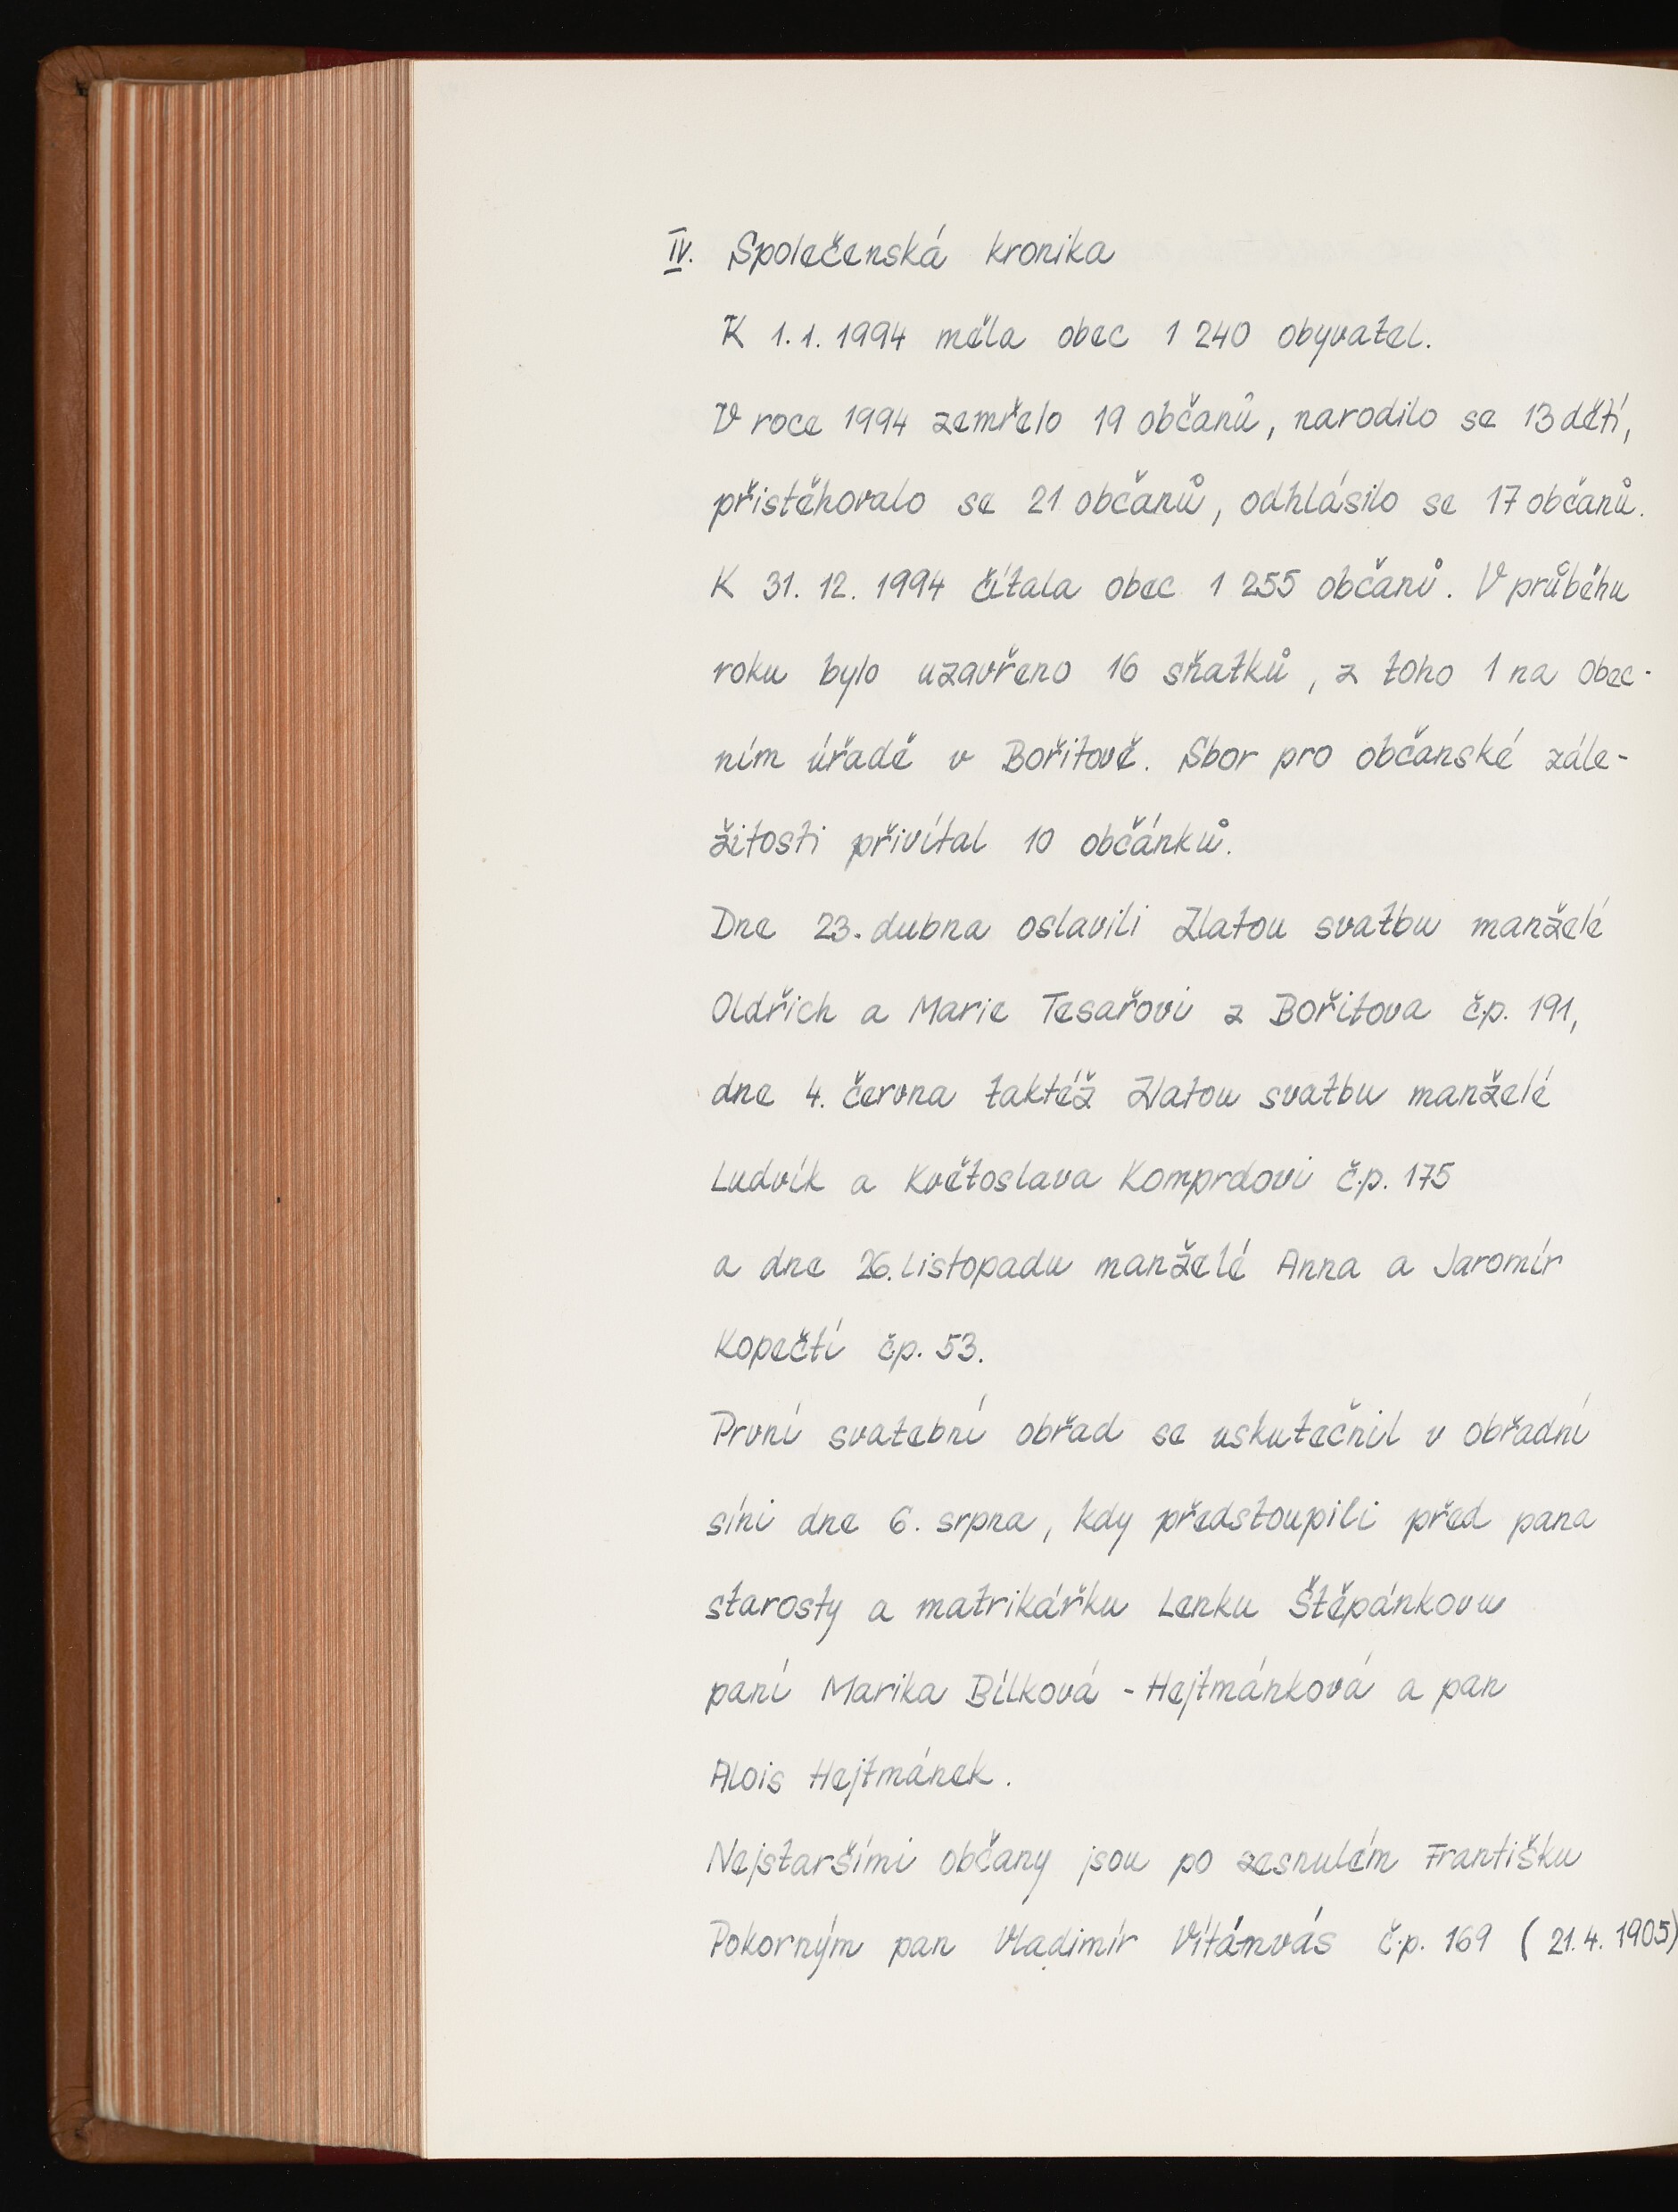 IV. Společenská kronika
K 1.1. 1994 měla obec 1 240 obyvatel.
V roce 1994 zemřelo 19 občanů, narodilo se 13 dětí,
přistěhovalo se 21 občanů, odhlásilo se 17 občanů.
K 31. 12. 1994 čítala obec 1 255 občanů. V průběhu
roku bylo uzavřeno 16 sňatků, z toho 1 na Obec-
ním úřadě v Bořitově. Sbor pro občanské zále-
žitosti přivítal 10 občánků.
Dne 23. dubna oslavili Zlatou svatbu manželé
Oldřich a Marie Tesařovi z Bořitova č.p. 191,
dne 4. června taktéž Zlatou svatbu manželé
Ludvík a Květoslava Komprdovi č.p. 175
a dne 26. listopadu manželé Anna a Jaromír
Kopečtí čp. 53.
První svatební obřad se uskutečnil v obřadní
síni dne 6. srpna, kdy předstoupili před pana
starosty a matrikářku Lenku Štěpánkovu
paní Marika Bílková - Hejtmánková a pan
Alois Hejtmánek.
Nejstaršími občany jsou po zesnulém Františku
Pokorným pan Vladimír Vítámvás č.p. 169 (21. 4. 1905)